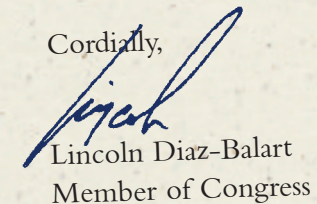 Cordially,
Lincoln
Lincoln Diaz-Balart
Member of Congress